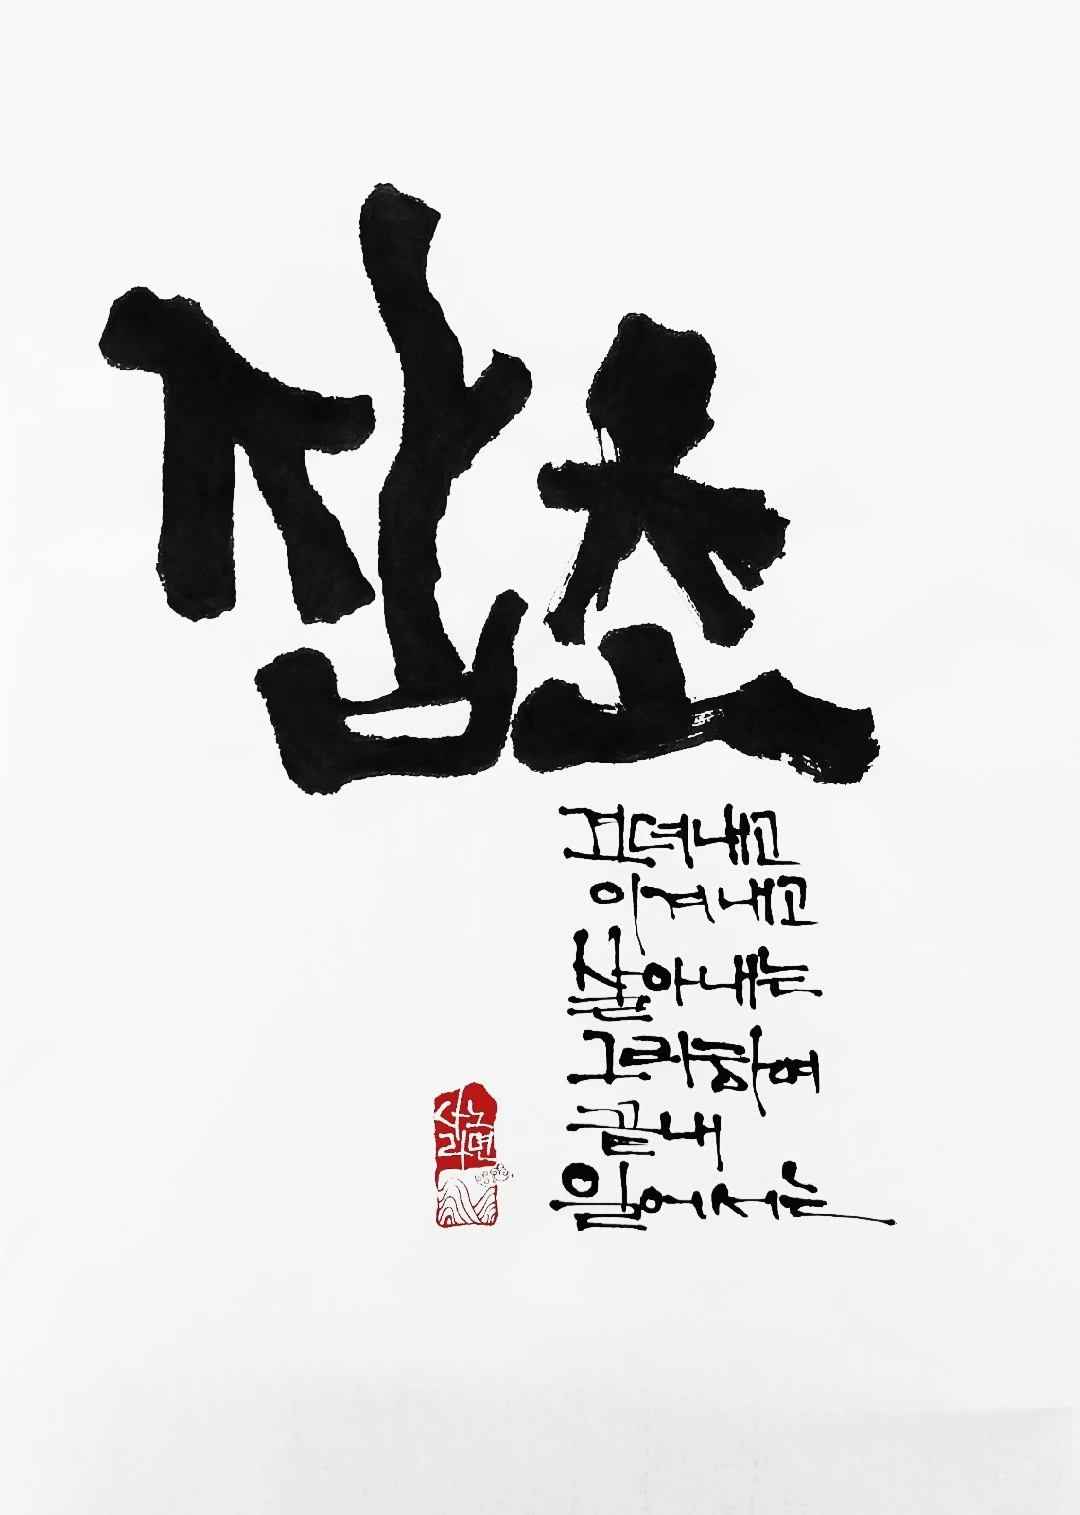 잡초
견뎌내고
이겨내고
살아내는
그리하여
끝내
일어서는